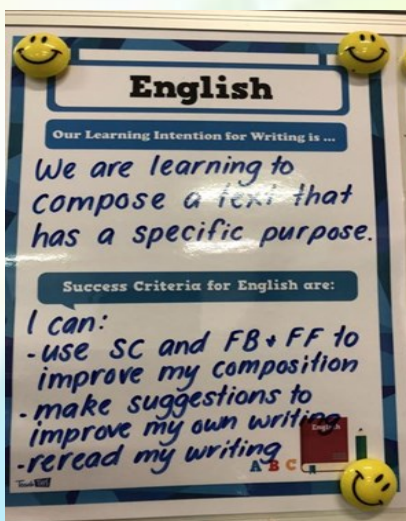 English
Our Learning Intention for Writing is ...
We are learning to
compose a text that
has a specific purpose.
Success Criteria for English are:
I can:
-use SC and FB + FF to
improve my composition
-make suggestions to
improve my own writing
-reread my writing
English
A B C
Teach